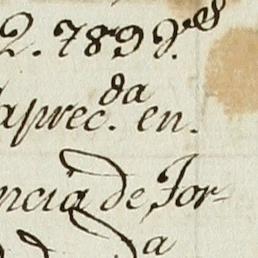 2.789 p.s
aprec.da en.
ncia de For-
da